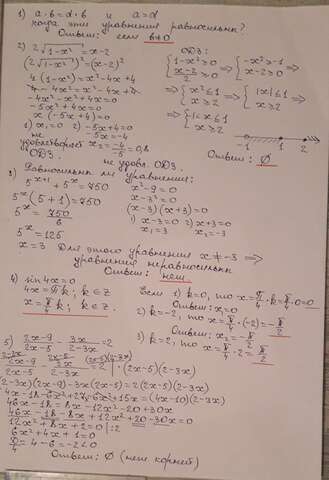 1) a·b=d·b и a=d
когда эти уравнения равносильны?
Ответ: если b≠0
2) 2√1-x² = x-2
(2√1-x²)² = (x-2)²
4(1-x²) = x²-4x+4
4-4x² = x²-4x+4
-4x²-x²+4x=0
-5x²+4x=0
x(-5x+4)=0
1) x₁=0 2) -5x+4=0
не -5x=-4
удовлетворяет x₂=-4/-5=0,8
ОДЗ. не удовл. ОДЗ.
ОДЗ:
{1-x²≥0 x-2≥0 ⇒ {-x²≥-1 x-2≥0 ⇒
⇒ {x²≤1 x≥2 ⇒ {|x|≤1 x≥2 ⇒
⇒ {-1≤x≤1 x≥2
-1 1 2
Ответ: ∅
3) Равносильны ли уравнения:
5ˣ⁺¹+5ˣ=750
5ˣ(5+1)=750
5ˣ=750/6
5ˣ=125
x=3
x²-9=0
(x-3)(x+3)=0
1) x-3=0 2) x+3=0
x₁=3 x₂=-3
Для этого уравнения x≠-3 ⇒
уравнения неравносильны
Ответ: нет
4) sin4x=0
4x=πk; k∈Z
x=π/4 k; k∈Z
Если 1) k=0, то x=π/4·k=π/4·0=0
Ответ: x₁=0
2) k=-2, то x=π/4·(-2)=-π/2
Ответ: x₂=-π/2
3) k=2, то x=π/4·2=π/2
5) 2x-9/2x-5 - 3x/2-3x=2
2x-9/2x-5 - 3x/2-3x=2 |·(2x-5)(2-3x)
(2-3x)(2x-9)-3x(2x-5)=2(2x-5)(2-3x)
4x-18-6x²+27x-6x²+15x=(4x-10)(2-3x)
46x-18=8x-12x²-20+30x
46x-18-8x+12x²+20-30x=0
12x²+8x+2=0 |:2
6x²+4x+1=0
D/4=4-6=-2<0
Ответ: ∅ (нет корней)